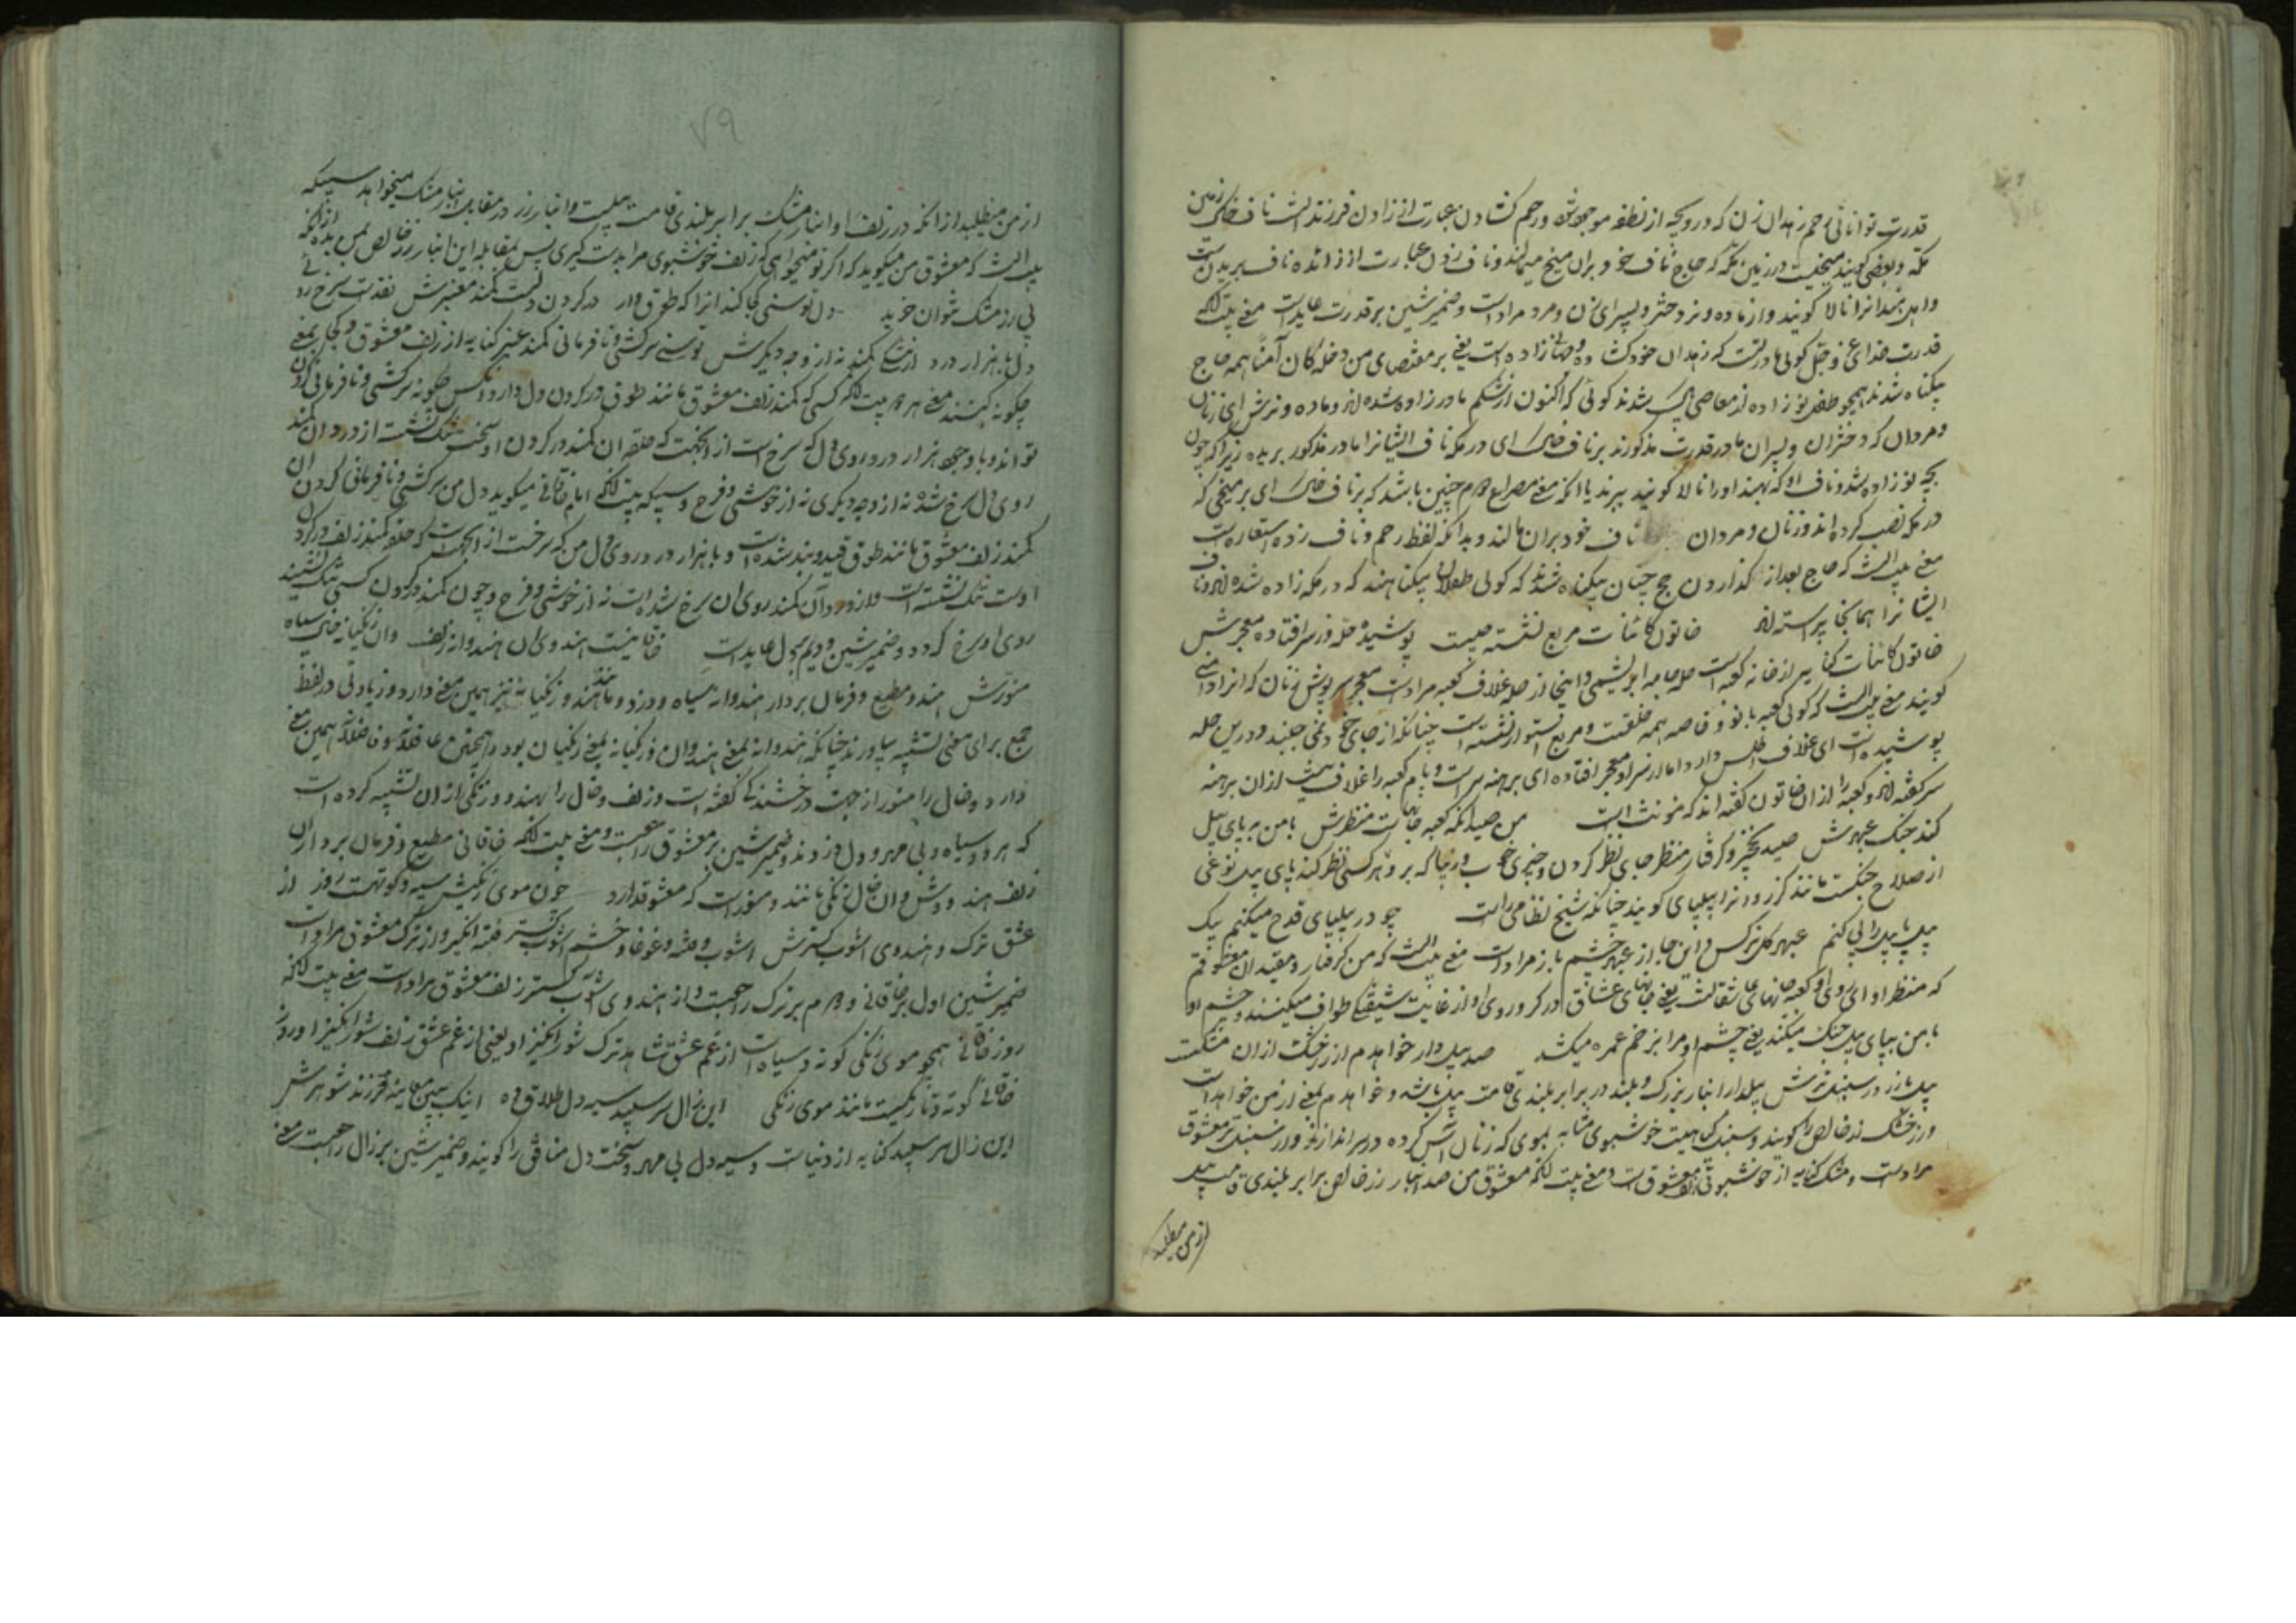 قدرت توانائی رحم زهدان زن که درو بچه از نطفه موجود شود رحم کشادن عبارت از زادن فرزند است ناف خاک زمین
مکه و بعضی کویند میخیست در زمین مکه که حاج ناف خود بران میخ میمالند و ناف زدن عبارت از زائده ناف بریدنست
و اهل هند انرا نالا کویند و از ماده و نر دختر و پسر ای زن و مرد مراد است و ضمیر شین بر قدرت عاید است معنی بیت انکه
قدرت خدای عز و جل کوئی مادریست که زهدان خود کشاده و زاده است یعنی بر مقتضای من دخله کان آمنا همه حاج
بیکناه شدند همچو طفل نو زاده از معاصی پاک شدند کوئی که اکنون از شکم مادر زاده شده اند و ماده و نرش ای زنان
و مردان که دختران و پسران مادر قدرت مذکورند بر ناف خاک ای در مکه ناف ایشانرا مادر مذکور بریده زیرا که چون
بچه نو زاده شد و ناف او که بهند اورا نالا کویند ببرند یا انکه معنی مصراع دوم چنین باشد که بر ناف خاک ای بر میخی که
در مکه نصب کرده اند و زنان و مردان ناف خود بران مالند و بدانکه لفظ رحم و ناف زده استعاره است
معنی بیت انست که حاج بعد از کذاردن حج چنان بیکناه شدند که کوئی طفلان بیکناهند که در مکه زاده شده اند و ناف
ایشانرا همانجا پیراسته اند خاتون کائنات مربع نشسته چیست پوشیده حله و ز سر افتاده معجرش
خاتون کائنات کنایه از خانه کعبه است حله جامه ابریشمی و اینجا از حله غلاف کعبه مراد است معجر سرپوش زنان که انرا دامنی
کویند معنی بیت انست که کوئی کعبه بانو و خاصه همه خلقت و مربع و استوار نشسته است چنانکه از جای خود نمی جنبد و درین حله
پوشیده است ای غلاف اطلس دارد اما از سر او معجر افتاده ای برهنه سر است و بام کعبه را غلاف نیست ازان برهنه
سر کفته اند و کعبه را ازان خاتون کفته اند که مونث است من صید انکه کعبه جانهاست منظرش با من به پای پیل
کند جنک عبهرش صید نخچیر و کرفتار منظر جای نظر کردن و چیزی خوب و زیبا که برو هر کسی نظر کند پای پیل نوعی
از صلاح جنکست مانند کرز و انرا پیلپای کویند چنانکه شیخ نظامی راست چو در پیلپای قدح میکنم یک
پیلپا پیل را پی کنم عبهر کل نرکس و این جا از عبهر چشم یار مراد است معنی بیت انست که من کرفتار و مقید ان معشوقم
که منظر او ای روی او کعبه جانهای عاشقانست یعنی جانهای عشاق در کرد روی او از غایت شیفتکی طواف میکنند و چشم او
با من به پای پیل جنک میکند یعنی چشم او مرا بزخم غمزه میکشد صد پیلوار خواهدم از زر خشک ازان مشکست
پیل بار در سنبل ترش پیلوار انبار بزرک و بلند در برابر بلندی قامت پیل باشد و خواهدم بمعنی از من خواهد است
و زر خشک زر خالص را کویند و سنبل کیاهیست خوشبوی مشابه بموی که زنان آش کرده در سر اندازند و از سنبل تر معشوق
مراد است و مشک کنایه از خوشبوئی زلف معشوق است و معنی بیت انکه معشوق من صد انبار زر خالص برابر بلندی قامت پیل
از من میطلبد
۷۹
از من میطلبد از انکه در زلف او انبار مشک برابر بلندی قامت پیلست و انبار زر در مقابله انبار مشک میخواهد سببیکه
بیت انست که معشوق من میکوید که اکر تو میخواهی که زلف خوشبوی مرا بدست کیری پس بمقابله این انبار زر خالص بمن بده از انکه
بی زر مشک نتوان خرید دل توسنی کجا کند انرا که طوق وار در کردن دلست کمند معنبرش نقدست سرخ رو
دل با هزار درد از تنکی کمند نه از وجه دیکرش توسنی سرکشی و نافرمانی کمند عنبر کنایه از زلف معشوق و کجا بمعنی
چکونه کنند معنی هر دو بیت انکه کسی که کمند زلف معشوق مانند طوق در کردن دل دارد انکس چکونه سرکشی و نافرمانی کردن
تواند و با وجود هزار درد روی دل که سرخ است از انجهت که حلقه ان کمند در کردن او سخت تنک نشست از درد ان کمند
روی دل سرخ شده نه از وجه دیکری نه از خوشی و فرح و سببیکه بیت انکه امام خاقانی میکوید دل من سرکشی و نافرمانی کردن ان
کمند زلف معشوق مانند طوق قید و بند شده است و با هزار درد روی دل من که سرخست از انجهت است که حلقه کمند زلف در کردن
اوست تنک نشسته است و از درد آن کمند روی ان سرخ شده است نه از خوشی و فرح و چون کمند در کردن کسی تنک نشیند
روی او سرخ کردد و ضمیر شین دویم بر دل عاید است خاقانیست هندوی ان هندوانه زلف وان زنکیانه خال سیاه
منورش هندو مطیع و فرمان بردار هندوانه سیاه و دزد و مانند هند و زنکیانه نیز همین معنی دارد و زیادتی در لفظ
جمع برای معنی تشبیه بیاورند چنانکه هندوانه بمعنی هندوان و زنکیانه بمعنی زنکیان بود و همچنین عاقلانه و فاضلانه همین معنی
دارد و خال را منور از جهت درخشندکی کفته است و زلف و خال را بهندو و زنکی ازان تشبیه کرده است
که هر دو سیاه و بی مهر و دل دزدند و ضمیر شین بر معشوق راجعست و معنی بیت انکه خاقانی مطیع و فرمان بردار ان
زلف هندووش و ان خال زنکی مانند و منور است که معشوق دارد چون موی زنکیش سیه و کوتهست روز از
عشق ترک و هندوی آشوب کسترش آشوب و فتنه و غوغا و خشم آشوب کستر فتنه انکیز و از ترک معشوق مراد است
ضمیر شین اول بر خاقانی و دوم بر ترک راجعست و از هندوی آشوب کستر زلف معشوق مراد است معنی بیت انکه
روز خاقانی همچو موی زنکی کوته و سیاه است از غم عشق شاهد ترک شور انکیز او یعنی از غم عشق زلف شور انکیز او روز
خاقانی کوته و تاریکست مانند موی زنکی این زال سر سپید سیه دل طلاق ده اینک ببین معاینه فرزند شوهرش
این زال سر سپید کنایه از دنیاست و سیه دل بی مهر و سخت دل منافق را کویند و ضمیر شین بر زال راجعست معنی